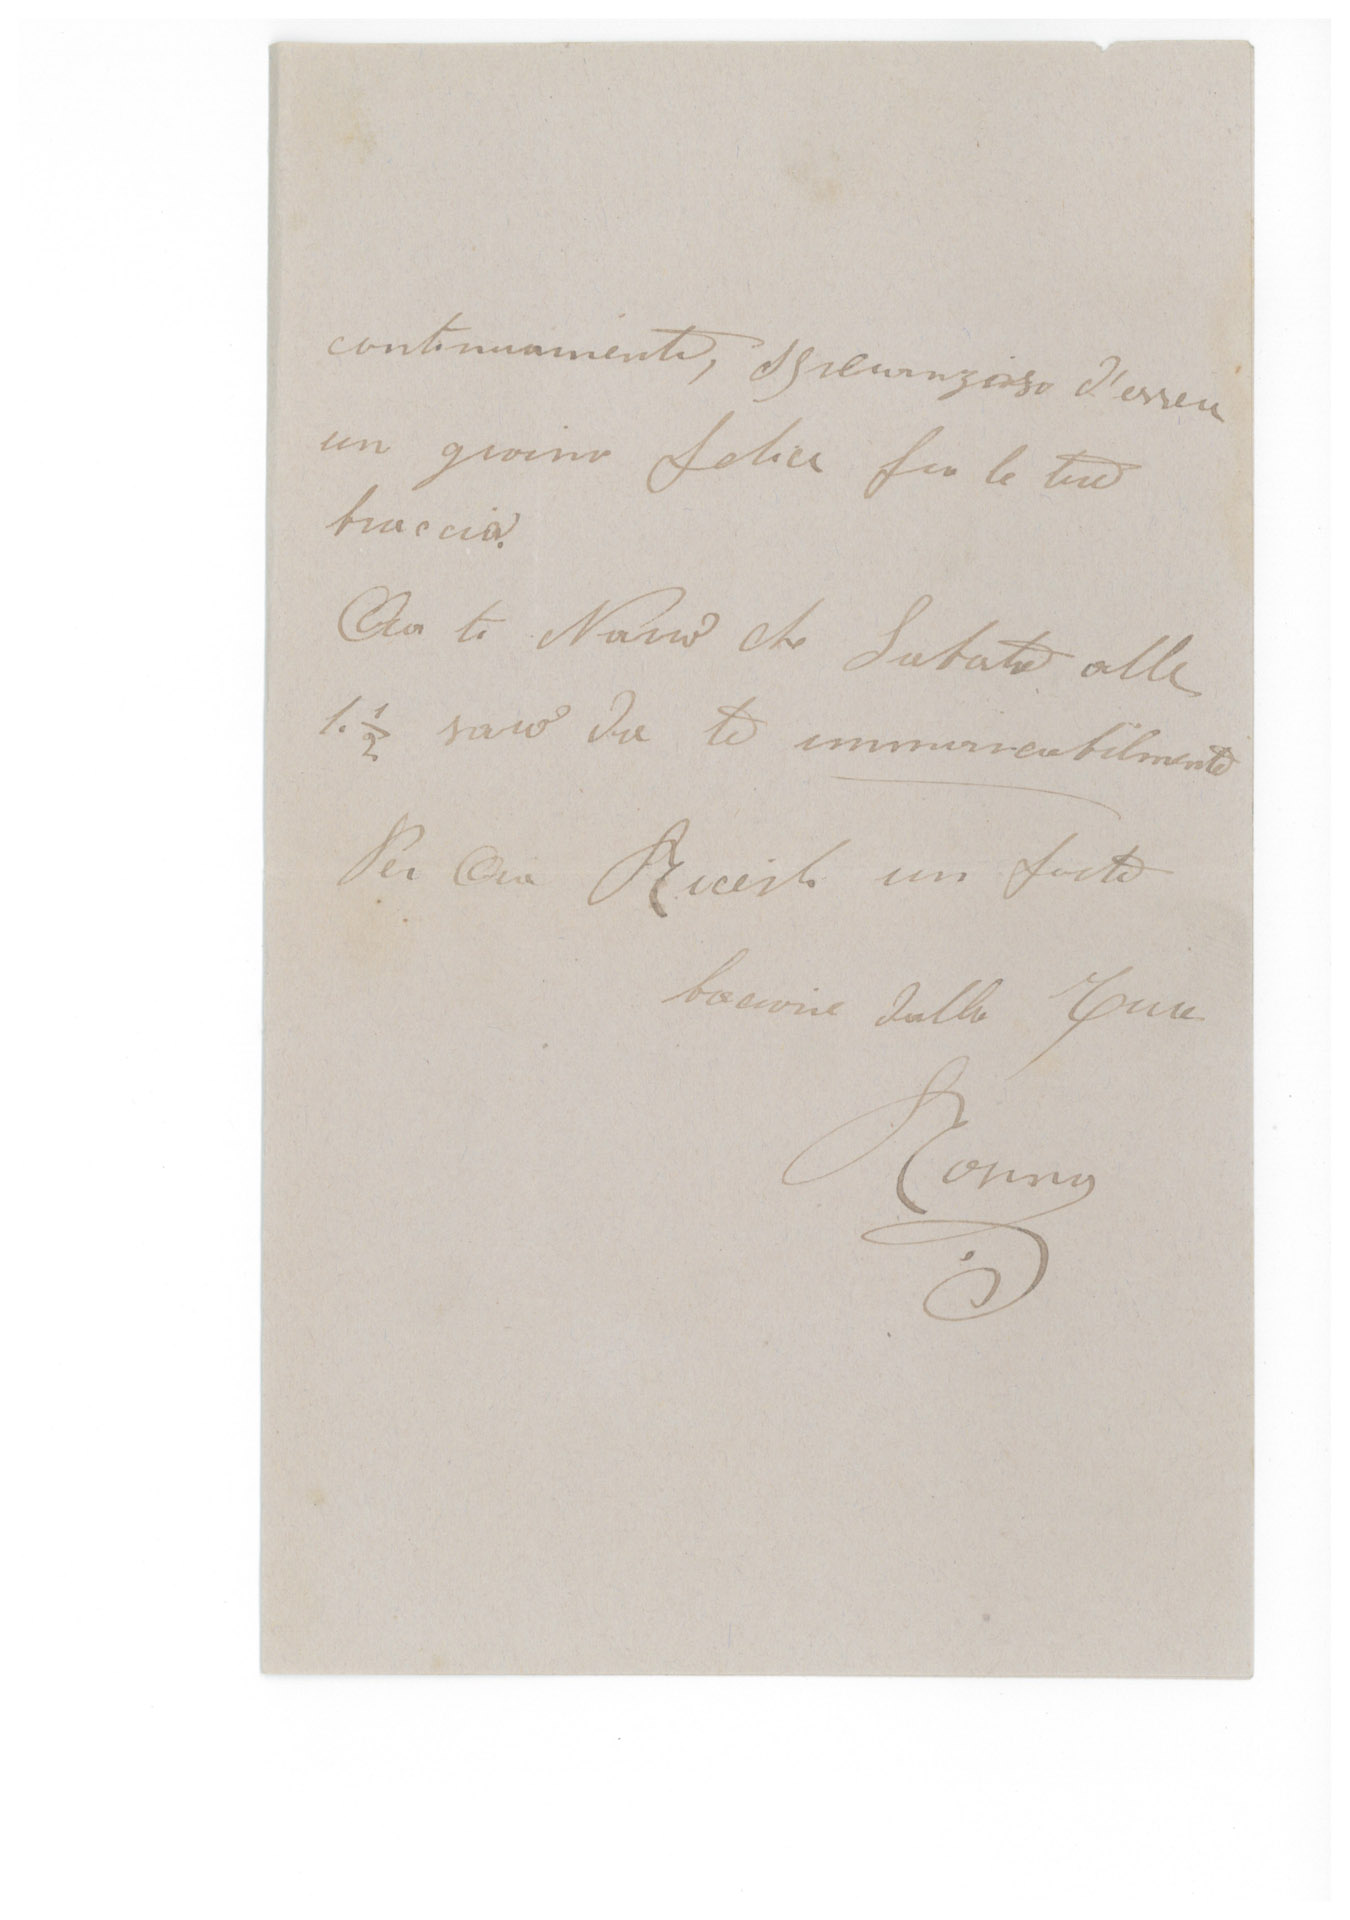 continuamente, speranzoso d'essere
un giorno felice fra le tue
braccia.
Ora ti che Sabato alle
1. 1/2 sarò da te immancabilmente
Per Ora Ricevi un forte
bacione dalla Tua
Nonna